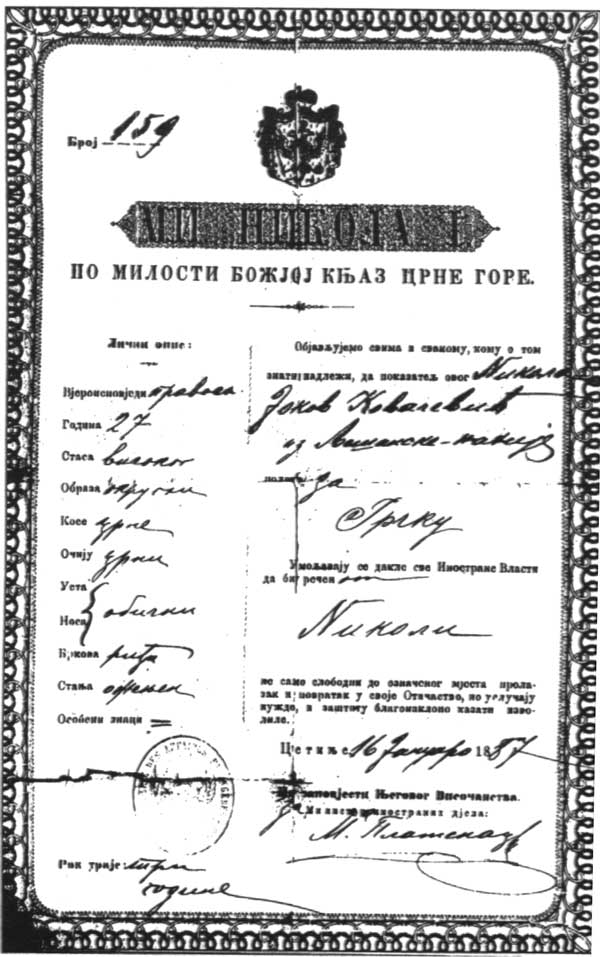 Број 159
МИ НИКОЛА I.
ПО МИЛОСТИ БОЖЈОЈ КЊАЗ ЦРНЕ ГОРЕ.
Лични опис:
Вјероисповједи правосл
Година 27
Стаса високог
Образа
Косе црне
Очију црни
Уста
Носа
обични
Бркова
Стања ожењен
Особени знаци =
Објављујемо свима и свакому, кому о том
знати надлежи, да показатељ овог Никола
Јоков Ковачевић
из
полази за
Грчку
Умољавају се дакле све Иностране Власти
да би речен
Николи
не само слободни до означеног мјеста прола-
зак и повратак у своје Отачаство, но у случају
нужде, и заштиту благонаклоно казати изво-
лиле.
Цетиње 16 Јануаро 1887
По заповјести Његовог Височанства.
За Министар иностраних дјела:
М.
Рок траје: три
године